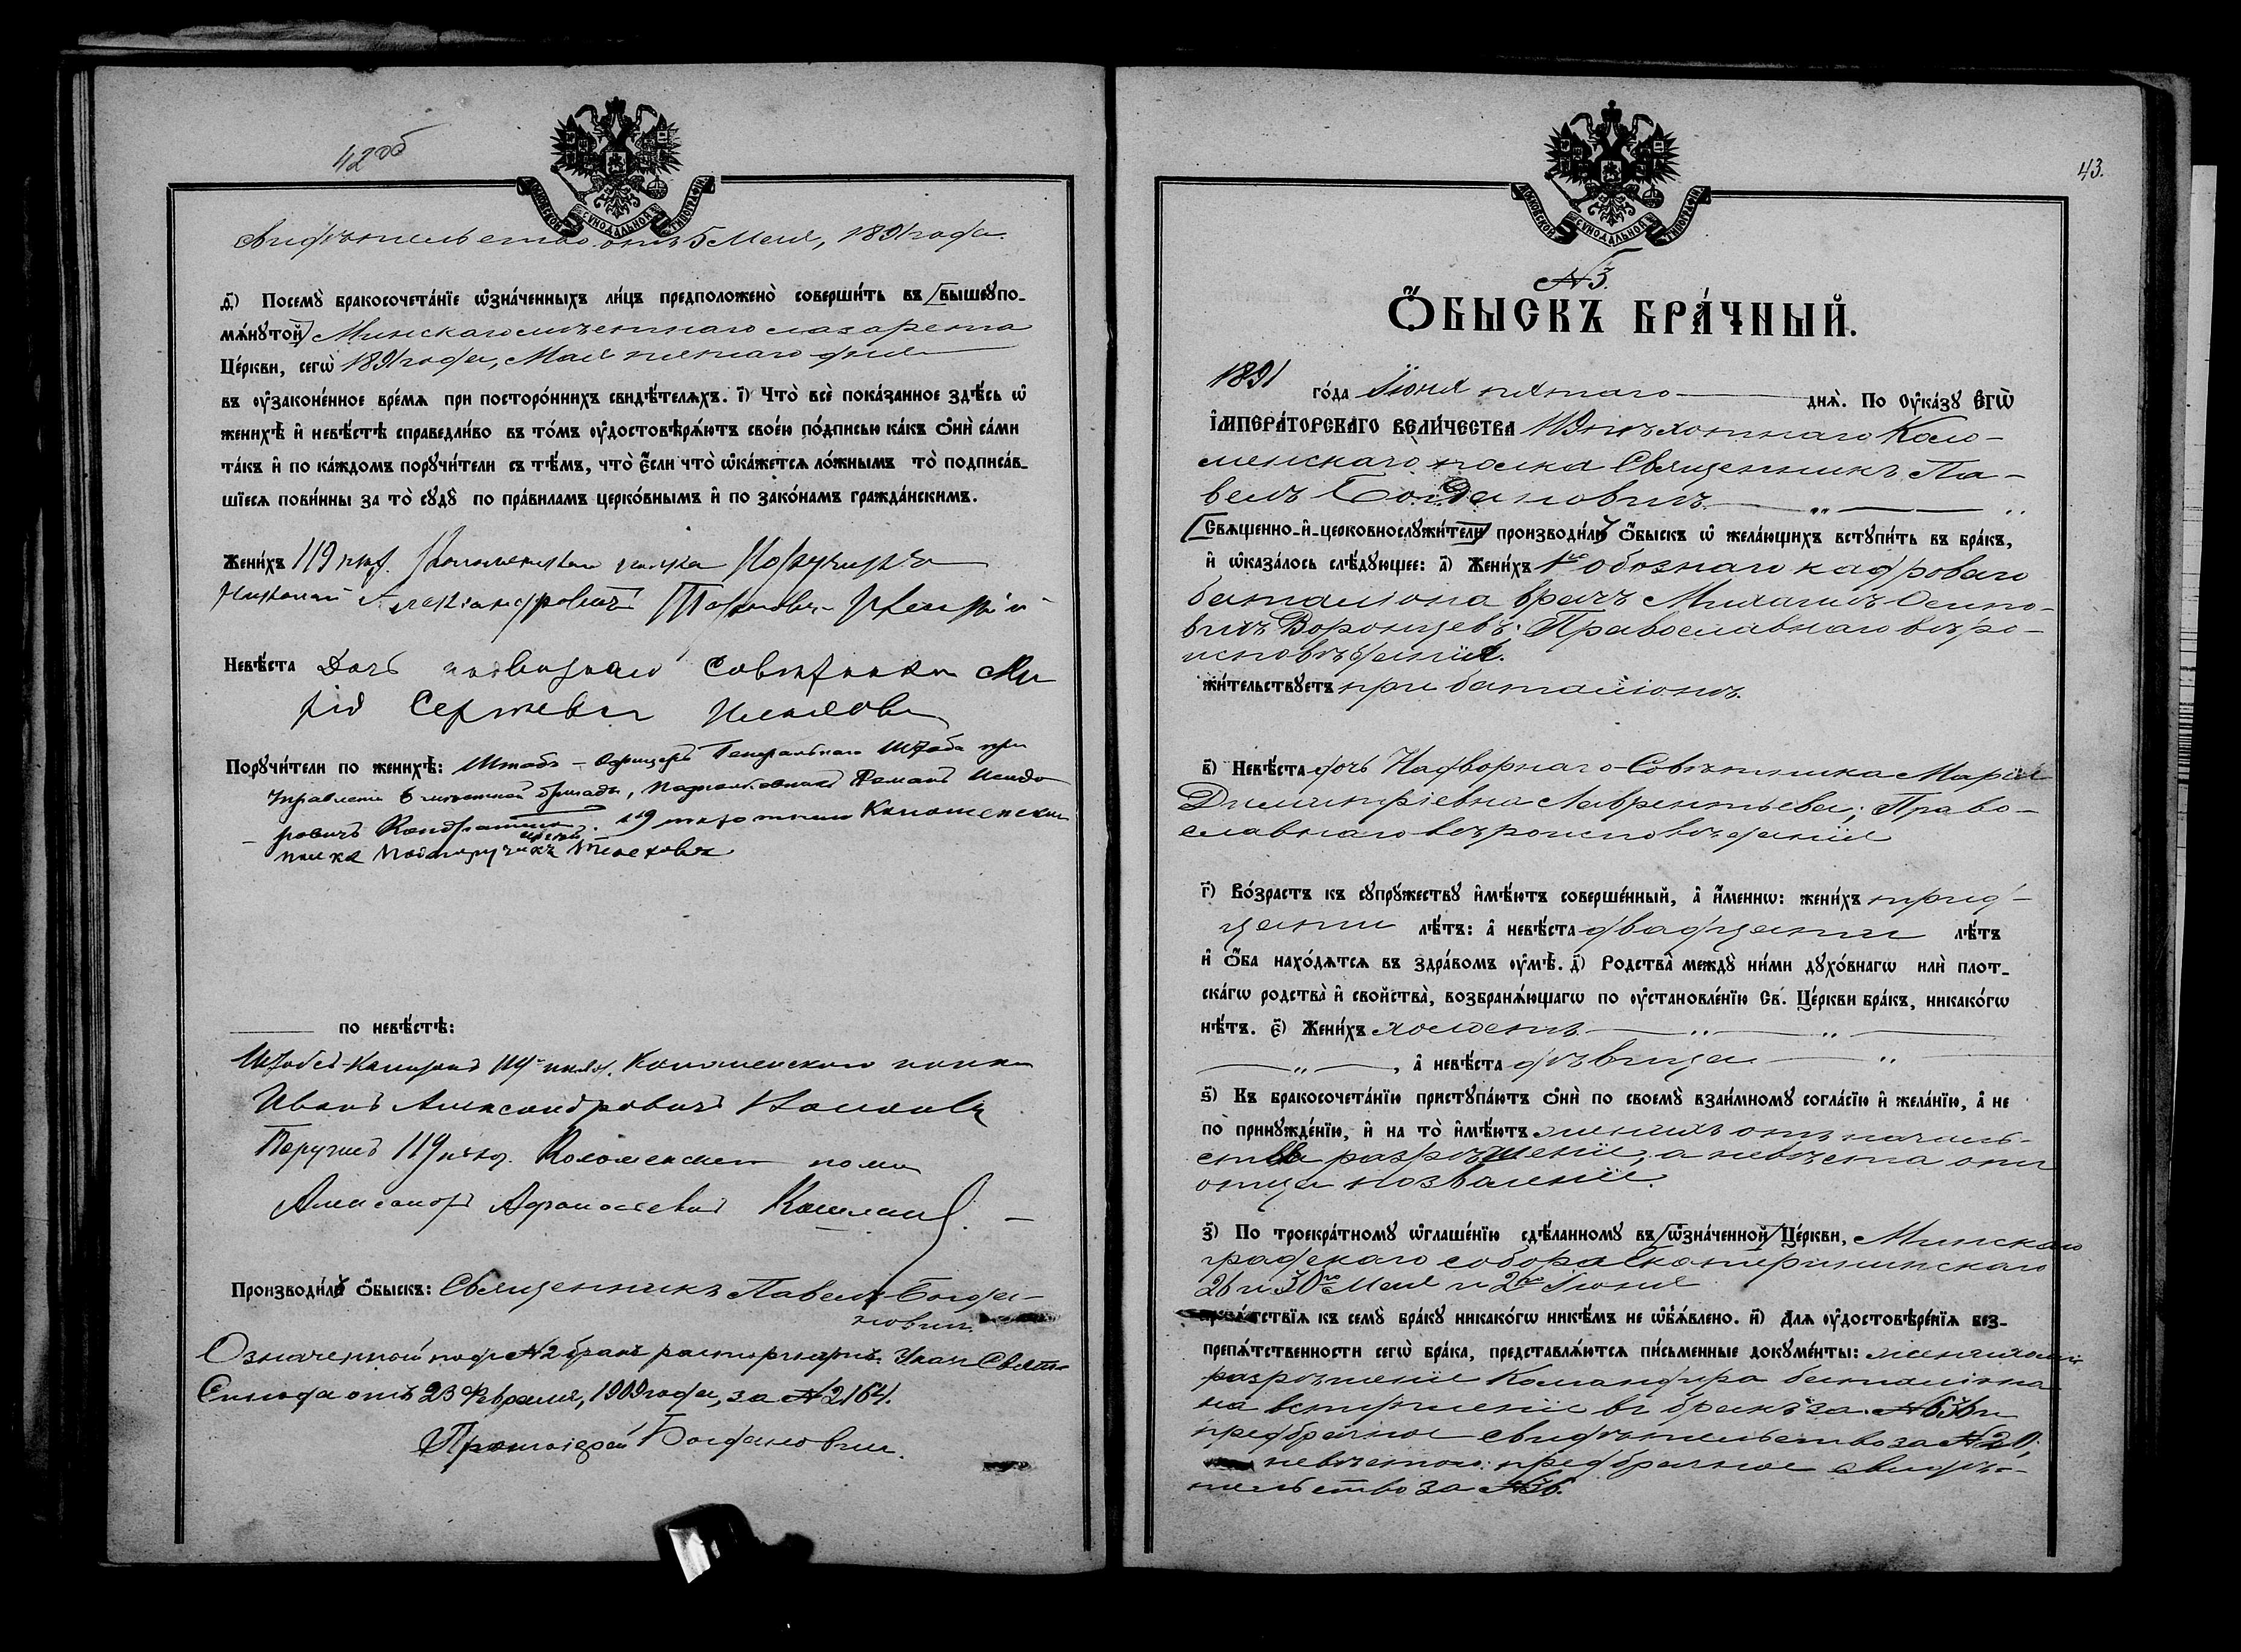 42 об
МОСКОВСКОЙ СѴНОДАЛЬНОЙ ТИПОГРАФІИ
свидѣтельство отъ 5 Мая, 1891 года.
д҃) Посемꙋ̀ бракосочета́нїе ѡ҆зна́ченныхъ ли́цъ предположено̀ соверши́ть въ вышеꙋпо-
мѧ́нꙋтой Минскаго мѣстнаго лазарета
Це́ркви, сегѡ̀ 1891 года, Мая пятаго дня
въ ᲂу҆законе́нное вре́мѧ при посторо́ннихъ свидѣ́телѧхъ. і҃) Что̀ всѐ пока́занное здѣ́сь ѡ҆
женихѣ̀ и҆ невѣ́стѣ справедли́во въ то́мъ ᲂу҆достовѣрѧ́ютъ свое́ю по́дписью ка́къ ѻ҆нѝ са́ми
та́къ и҆ по ка́ждомъ порꙋчи́тели съ тѣ́мъ, что̀ є҆́сли что̀ ѡ҆ка́жетсѧ ло́жнымъ то̀ подписа́в-
шїесѧ пови́нны за то̀ сꙋдꙋ̀ по пра́виламъ церко́внымъ и҆ по зако́намъ гражда́нскимъ.
Жени́хъ 119 пѣх. Коломенскаго полка Поручикъ
Николай Александровичъ
Невѣ́ста Дочь надворнаго Совѣтника Ма
рія Сергѣева
Порꙋчи́тели по женихѣ̀: Штабъ-Офицеръ Генеральнаго Штаба при
Управленіи 6 мѣстной бригады, Подполковникъ Романъ Исидо
ровичъ Кондратенко. 119 пѣхотнаго Коломенскаго
полка Подпоручикъ
по невѣ́стѣ:
Штабсъ-Капитанъ 119 пѣх. Коломенскаго полка
Иванъ Александровичъ
Поручикъ 119 пѣх. Коломенскаго полка
Александръ Афанасьевичъ
Производи́лъ ѻ҆́быскъ: Священникъ Павелъ Богда-
новичъ.
Означенный подъ № 2 бракъ расторгнутъ. Указъ Святѣ
Синода отъ 23 Февраля, 1909 года, за № 2164.
Протоіерей Богдановичъ.
43.
МОСКОВСКОЙ СѴНОДАЛЬНОЙ ТИПОГРАФІИ
№ 3.
Ѻ҆́БЫСКЪ БРА́ЧНЫЙ.
1891 го́да Іюня пятаго днѧ̀. По Оу҆ка́зꙋ Є҆ГѠ̀
І҆МПЕРА́ТОРСКАГО ВЕЛИ́ЧЕСТВА 119 Пѣхотнаго Коло-
менскаго полка Священникъ Па-
велъ Богдановичъ
Свѧщенно-и҆-церковнослꙋжи́тели производи́лъ ѻ҆́быскъ ѡ҆ жела́ющихъ встꙋпи́ть въ бра́къ,
и҆ ѡ҆каза́лось слѣ́дꙋющее: а҃) Жени́хъ 1го обознаго кадроваго
баталіона врачъ Михаилъ Осипо-
вичъ Воронцевъ. Православнаго вѣро-
исповѣданія.
жи́тельствꙋетъ при баталіонѣ.
в҃) Невѣ́ста дочь Надворнаго Совѣтника Марія
Димитріевна Лаврентьева; Право-
славнаго вѣроисповѣданія
г҃) Во́зрастъ къ сꙋпрꙋ́жествꙋ и҆мѣ́ютъ соверше́нный, а҆ и҆́меннѡ: жени́хъ трид-
цати лѣ́тъ: а҆ невѣ́ста двадцати лѣ́тъ
и҆ ѻ҆́ба нахо́дѧтсѧ въ здра́вомъ ᲂу҆мѣ̀. д҃) Родства̀ междꙋ̀ ни́ми дꙋхо́внагѡ и҆лѝ плот-
ска́гѡ родства̀ и҆ сво́йства, возбранѧ́ющагѡ по ᲂу҆становле́нїю Св. Це́ркви бра́къ, никако́гѡ
нѣ́тъ. є҃) Жени́хъ холостъ
, а҆ невѣ́ста дѣвица
ѕ҃) Къ бракосочета́нїю пристꙋпа́ютъ ѻ҆нѝ по своемꙋ̀ взаи́мномꙋ согла́сїю и҆ жела́нїю, а҆ не
по̀ принꙋжде́нїю, и҆ на то̀ и҆мѣ́ютъ женихъ отъ началь-
ства разрѣшеніе, а невѣста отъ
отца позволеніе.
з҃) По троекра́тномꙋ ѡ҆глаше́нїю сдѣ́ланномꙋ въ ѡ҆зна́ченной Це́ркви, Минскаго
градскаго собора Екатерининскаго
26 и 30го Мая и 2го Іюня
препѧ́тствїѧ къ семꙋ̀ бра́кꙋ никако́гѡ никѣ́мъ не ѡ҆б̾ѧ́влено. и҃) Длѧ ᲂу҆достовѣре́нїѧ без-
препѧ́тственности сегѡ̀ бра́ка, представлѧ́ютсѧ пи́сьменные докꙋме́нты: женихомъ
разрѣшеніе Командира баталіона
на вступленіе въ бракъ за № 636 и
предбрачное свидѣтельство за № 20,
невѣстою: предбрачное свидѣ-
тельство за № 36.